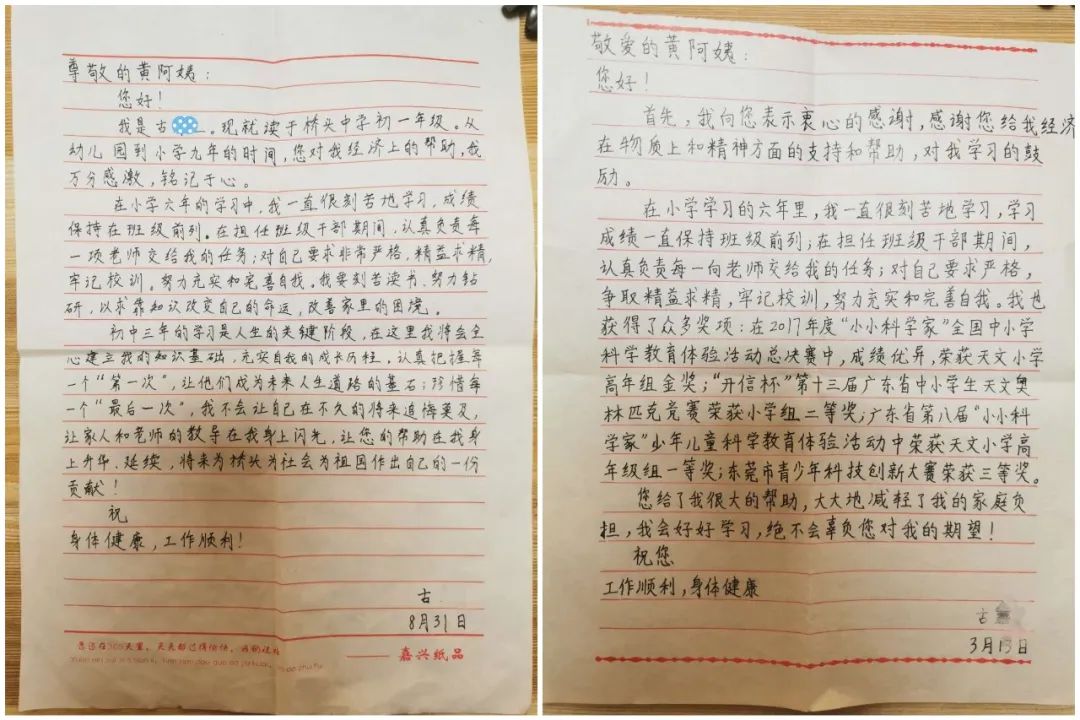 尊敬的黄阿姨：
您好！
我是古 。现就读于桥头中学初一年级。从
幼儿园到小学九年的时间，您对我经济上的帮助，我
万分感激，铭记于心。
在小学六年的学习中，我一直很刻苦地学习，成绩
保持在班级前列。在担任班级干部期间，认真负责每
一项老师交给我的任务；对自己要求非常严格，精益求精，
牢记校训。努力充实和完善自我。我要刻苦读书、努力钻
研，以求靠知识改变自己的命运，改善家里的困境。
初中三年的学习是人生的关键阶段，在这里我将会全
心建立我的知识基础，充实自我的成长历程，认真把握每
一个“第一次”，让他们成为未来人生道路的基石；珍惜每
一个“最后一次”，我不会让自己在不久的将来追悔莫及，
让家人和老师的教导在我身上闪光，让您的帮助在我身
上升华、延续，将来为桥头为社会为祖国作出自己的一份
贡献！
祝
身体健康，工作顺利！
古
8月31日
嘉兴纸品
敬爱的黄阿姨：
您好！
首先，我向您表示衷心的感谢，感谢您给我经济
在物质上和精神方面的支持和帮助，对我学习的鼓
励。
在小学学习的六年里，我一直很刻苦地学习，学习
成绩一直保持班级前列；在担任班级干部期间，
认真负责每一向老师交给我的任务；对自己要求严格，
争取精益求精，牢记校训，努力充实和完善自我。我也
获得了众多奖项：在2017年度“小小科学家”全国中小学
科学教育体验活动总决赛中，成绩优异，荣获天文小学
高年组金奖；“升信杯”第十三届广东省中小学生天文奥
林匹克竞赛荣获小学组二等奖；广东省第八届“小小科
学家”少年儿童科学教育体验活动中荣获天文小学高
年级组一等奖；东莞市青少年科技创新大赛荣获三等奖。
您给了我很大的帮助，大大地减轻了我的家庭负
担，我会好好学习，绝不会辜负您对我的期望！
祝您
工作顺利，身体健康
古
3月13日